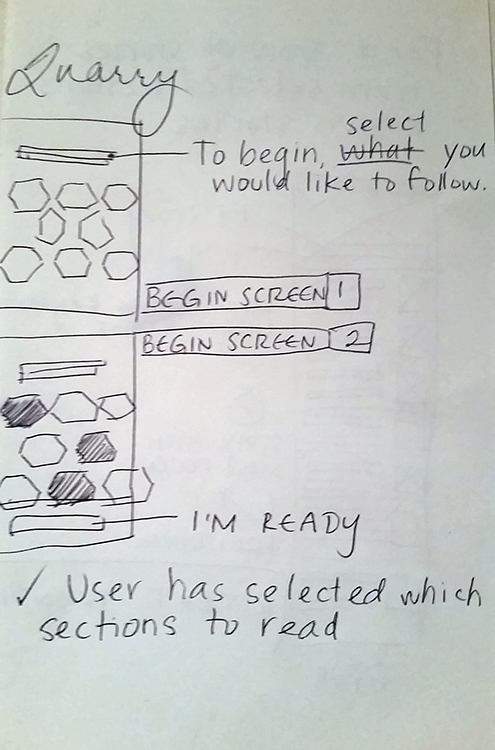 Quarry
select
To begin, what you
would like to follow.
BEGIN SCREEN 1
BEGIN SCREEN 2
I'M READY
✓ User has selected which
sections to read